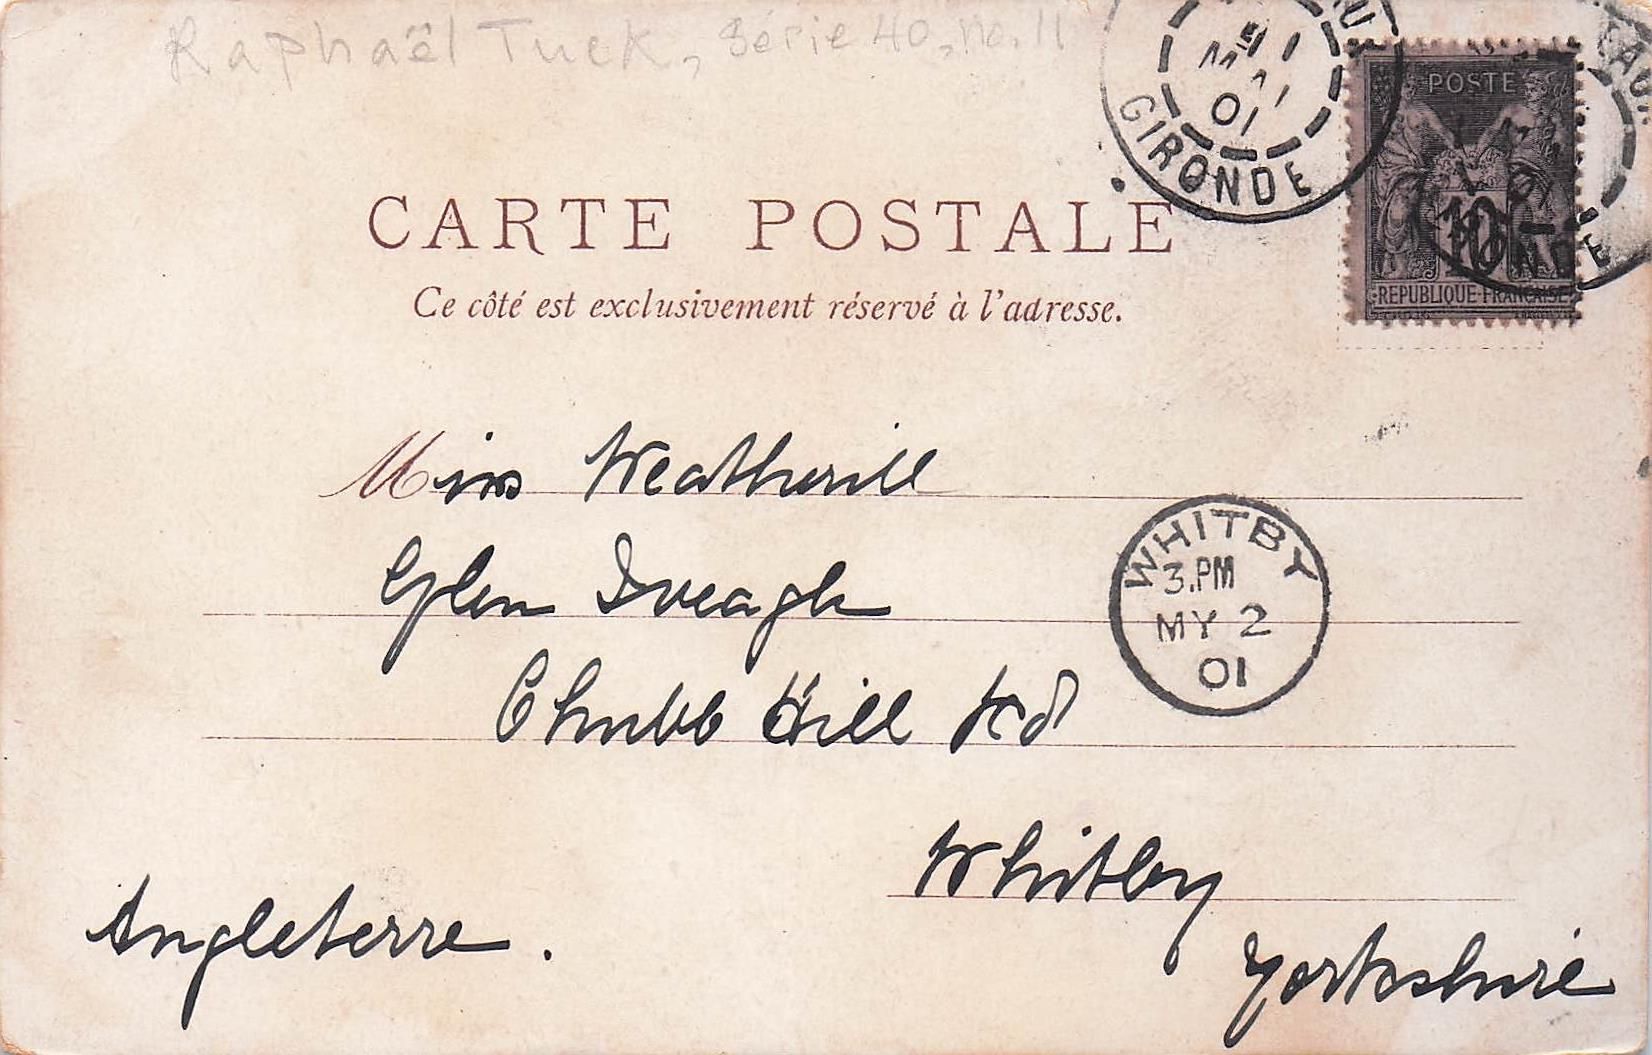 Raphaël Tuck, Série 40, no. 11
GIRONDE
01
POSTE
10
REPUBLIQUE FRANÇAISE
CARTE POSTALE
Ce côté est exclusivement réservé à l'adresse.
Miss Weatherill
Glen Iveagh
Chubb Hill Rd
Whitby
Yorkshire
Angleterre.
WHITBY
3.PM
MY 2
01